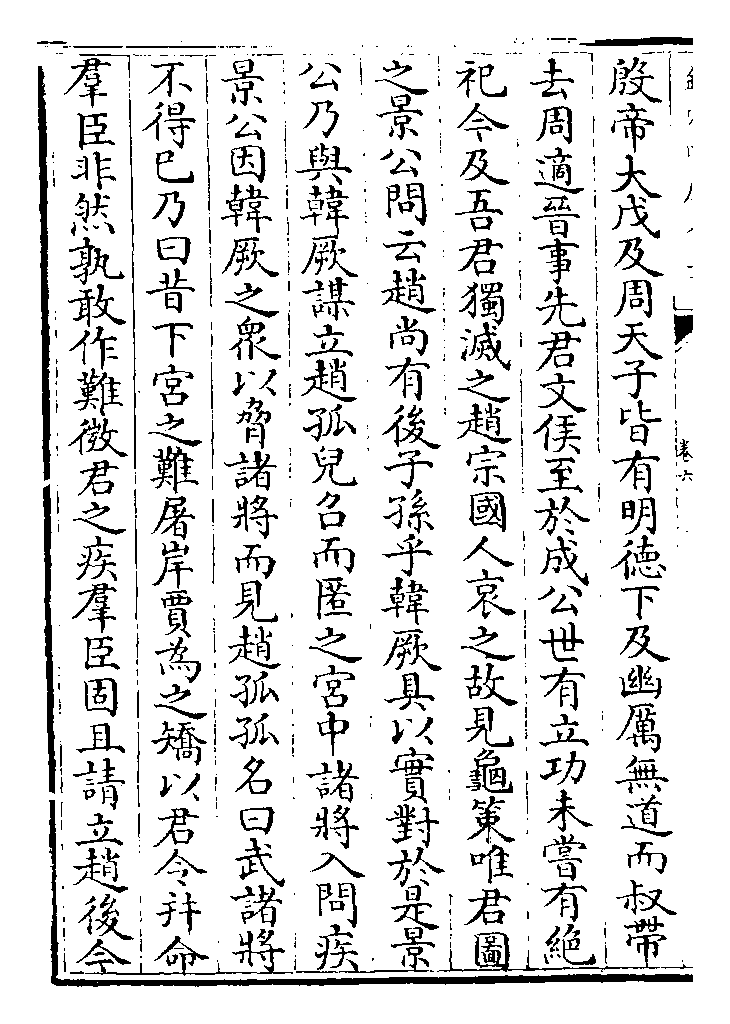 殷帝大戊及周天子皆有明德下及幽厲無道而叔帶
去周適晉事先君文侯至於成公世有立功未嘗有絕
祀今及吾君獨滅之趙宗國人哀之故見龜策唯君圖
之景公問云趙尚有後子孫乎韓厥具以實對於是景
公乃與韓厥謀立趙孤兒召而匿之宮中諸將入問疾
景公因韓厥之衆以脅諸將而見趙孤孤名曰武諸將
不得已乃曰昔下宮之難屠岸賈為之矯以君令幷命
羣臣非然孰敢作難微君之疾羣臣固且請立趙後今
卷六